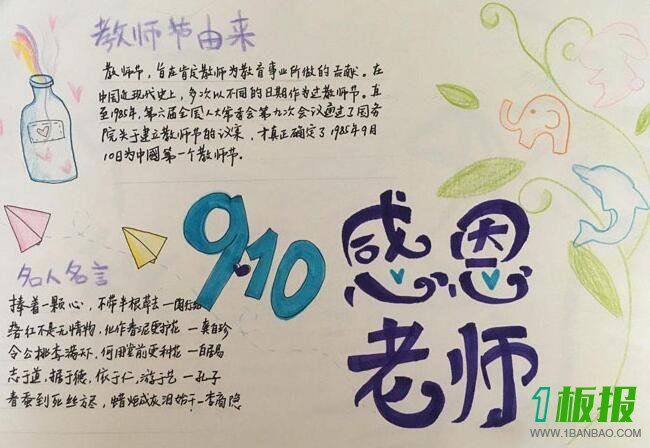 教师节由来
教师节,旨在肯定教师为教育事业所做的贡献。在
中国近现代史上,多次以不同的日期作为过教师节。直
至1985年,第六届全国人大常委会第九次会议通过了国务
院关于建立教师节的议案,才真正确定了1985年9月
10日为中國第一个教师节。
9.10
感恩
老师
名人名言
捧着一颗心,不带半根草去一陶行知
落红不是无情物,化作春泥更护花 一龚自珍
令公桃李满天下,何用堂前更种花 一白居易
志于道,据于德,依于仁,游于艺 一孔子
春蚕到死丝方尽,蜡炬成灰泪始干一李商隐
1板报
WWW.1BANBAO.COM